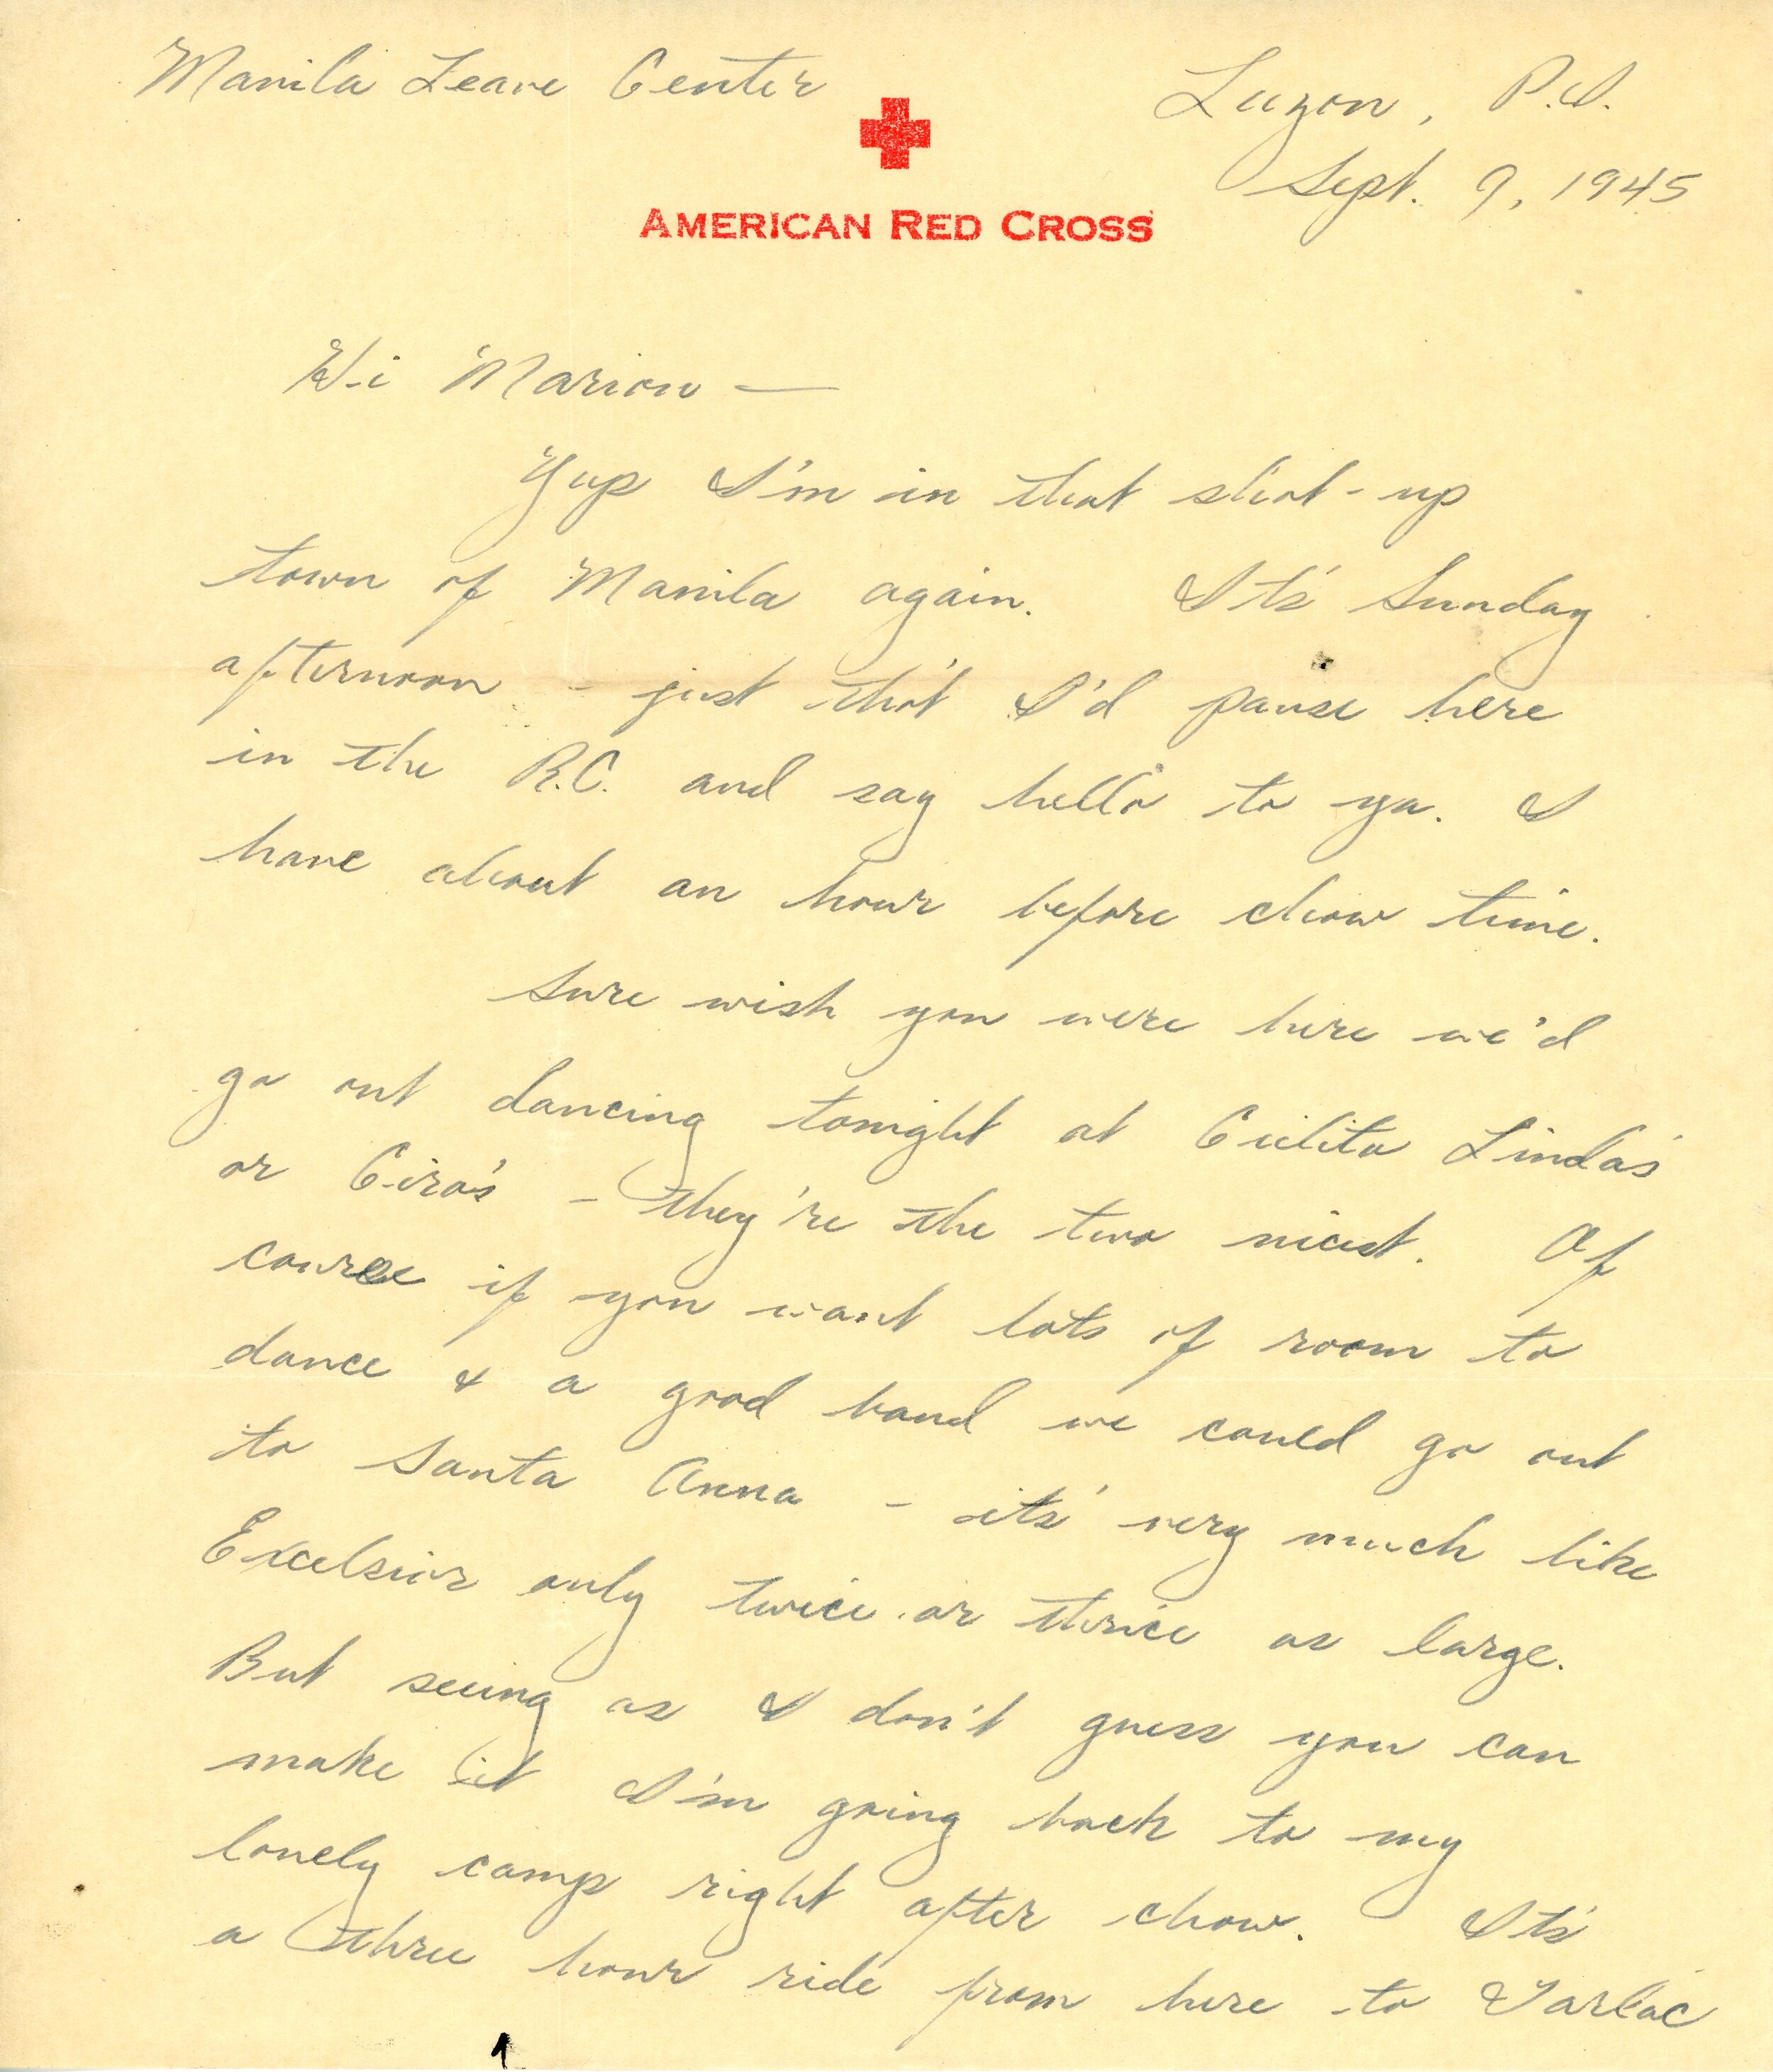 Manila Leave Center
Luzon, P.I.
Sept. 9, 1945
AMERICAN RED CROSS
Hi Marion —
Yup I'm in that shot-up
town of Manila again. It's Sunday
afternoon - just tho't I'd pause here
in the R.C. and say hello to ya. I
have about an hour before chow time.
Sure wish you were here we'd
go out dancing tonight at Cielito Linda's
or Ciro's - they're the two nicest. Of
course if you want lots of room to
dance & a good band we could go out
to Santa Anna - it's very much like
Excelsior only twice or thrice as large.
But seeing as I don't guess you can
make it I'm going back to my
lonely camp right after chow. It's
a three hour ride from here to Tarlac
1